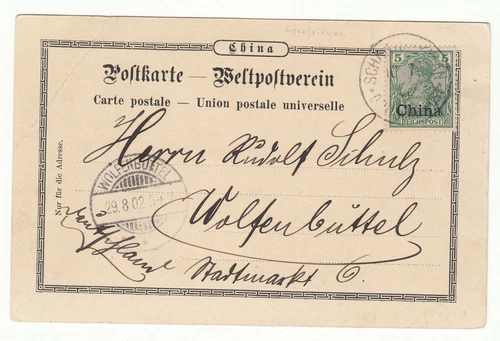 China
Postkarte — Weltpostverein
Carte postale — Union postale universelle
Nur für die Adresse.
5 5
China
REICHSPOST
SCH
Herrn Rudolf Schulz
WOLFENBÜTTEL
29.8.02.5-
Wolfenbüttel
Stadtmarkt 6.
Deutschland